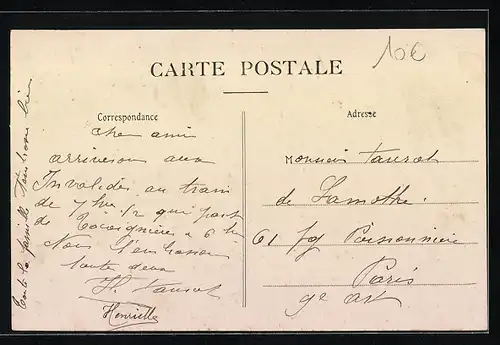 10€
CARTE POSTALE
Correspondance
Cher ami
arriverons aux
Invalides au train
de 7 hrs 1/2 qui part
de à 6 h
Nous t'embrassons
toute deux
H. Taurat
Henriette
Toute la famille
Adresse
Monsieur Taurat
de Lamothe.
61 fg Poissonnière
Paris
9e art